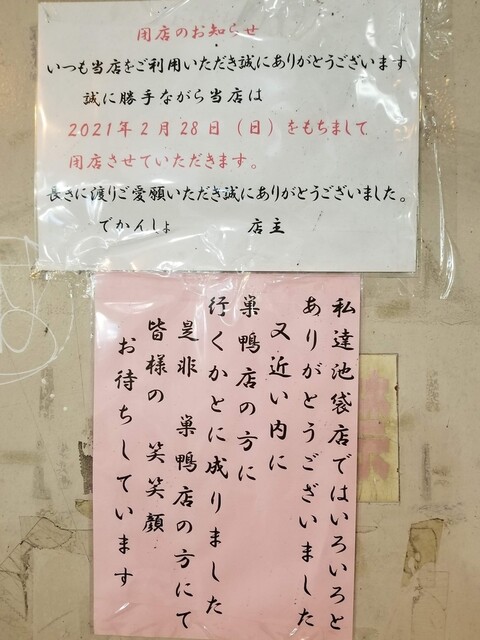 閉店のお知らせ
いつも当店をご利用いただき誠にありがとうございます
誠に勝手ながら当店は
2021年2月28日(日)をもちまして
閉店させていただきます。
長きに渡りご愛願いただき誠にありがとうございました。
でかんしょ 店主
私達池袋店ではいろいろと
ありがとうございました
又近い内に
巣鴨店の方に
行くかとに成りました
是非 巣鴨店の方にて
皆様の 笑笑顔
お待ちしています